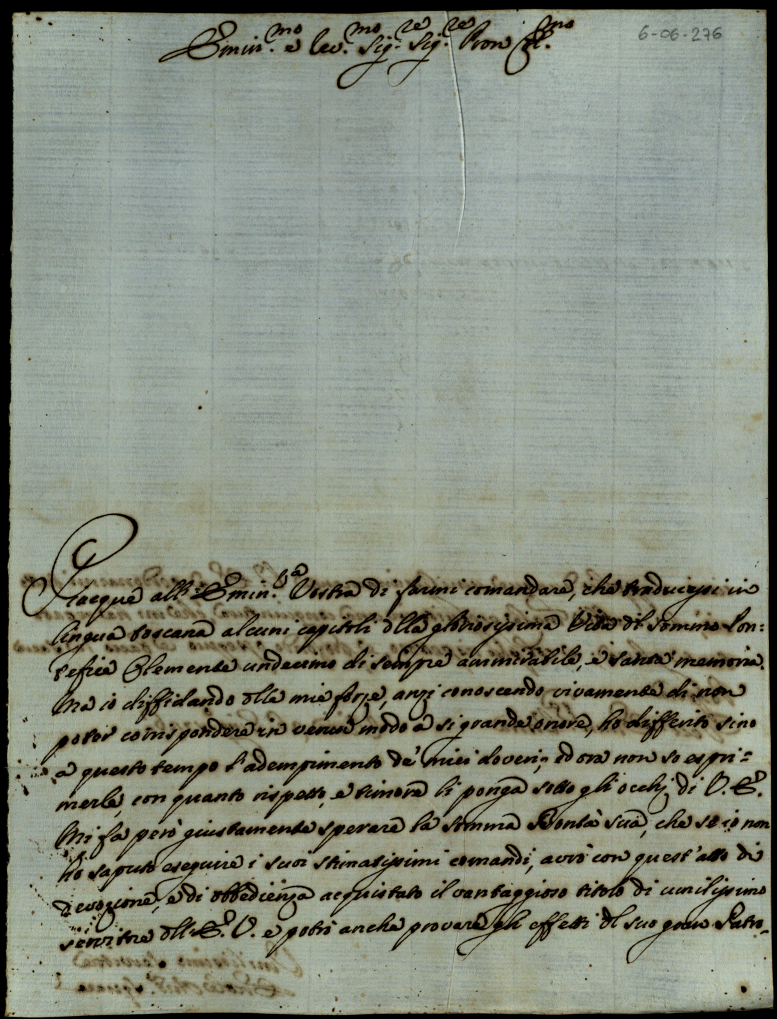 6-06-276
Emin.mo e Rev.mo Sig.re Sig.re Pron Col.mo
Piacque all'Emin.za Vostra di farmi comandare, che traducessi in
lingua toscana alcuni capitoli dlla gloriosissima Vita dl Sommo Pon:
tefice Clemente undecimo di sempre ammirabile, e santa memoria.
Ma io diffidando dlle mie forze, anzi conoscendo vivamente di non
poter corrispondere in verun modo a si grande onore, ho differito sino
a questo tempo l'adempimento de' miei doveri; ed ora non so espri=
merle, con quanto rispetto, e timore li ponga sotto gli occhj di V. E.
Mi fa però giustamente sperare la somma Bontà sua, che se io non
ho saputo eseguire i suoi stimatissimi comandi, avrò con quest'atto di
devozione, e di obbedienza acquistato il vantaggioso titolo di umilissimo
servitre dll'E. V. e potrò anche provare gli effetti dl suo gran Patro-